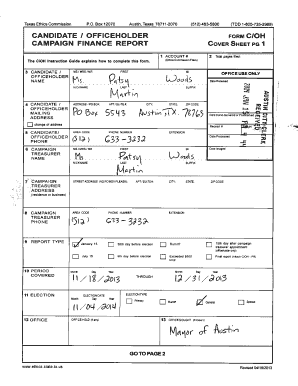 Texas Ethics Commission P.O. Box 12070 Austin, Texas 78711-2070 (512) 463-5800 (TDD 1-800-735-2989)
CANDIDATE / OFFICEHOLDER FORM C/OH
CAMPAIGN FINANCE REPORT COVER SHEET PG 1
The C/OH Instruction Guide explains how to complete this form.
1 ACCOUNT #
2 Total pages filed:
3 CANDIDATE / OFFICEHOLDER NAME
MS / MRS / MR FIRST MI
Ms. Patsy Woods
NICKNAME LAST SUFFIX
Martin
OFFICE USE ONLY
Date Received
AUSTIN CITY CLERK
RECEIVED
4 CANDIDATE / OFFICEHOLDER MAILING ADDRESS
ADDRESS / PO BOX; APT / SUITE #; CITY; STATE; ZIP CODE
PO Box 5543 Austin, TX. 78763
change of address
5 CANDIDATE / OFFICEHOLDER PHONE
AREA CODE PHONE NUMBER EXTENSION
(512) 633-3232
6 CAMPAIGN TREASURER NAME
MS / MRS / MR FIRST MI
Ms. Patsy Woods
NICKNAME LAST SUFFIX
Martin
Date Processed
Date Imaged
7 CAMPAIGN TREASURER ADDRESS
(residence or business)
STREET ADDRESS (NO PO BOX PLEASE); APT / SUITE #; CITY; STATE; ZIP CODE
8 CAMPAIGN TREASURER PHONE
AREA CODE PHONE NUMBER EXTENSION
(512) 633-3232
9 REPORT TYPE
January 15 30th day before election Runoff 15th day after campaign treasurer appointment (officeholder only)
July 15 8th day before election Exceeded $500 limit Final report (Attach C/OH - FR)
10 PERIOD COVERED
Month Day Year Month Day Year
11/18/2013 THROUGH 12/31/2013
11 ELECTION
ELECTION DATE ELECTION TYPE
Month Day Year
11/04/2014 Primary Runoff General Special
12 OFFICE
OFFICE HELD (if any)
13 OFFICE SOUGHT (if known)
Mayor of Austin
GO TO PAGE 2
www.ethics.state.tx.us